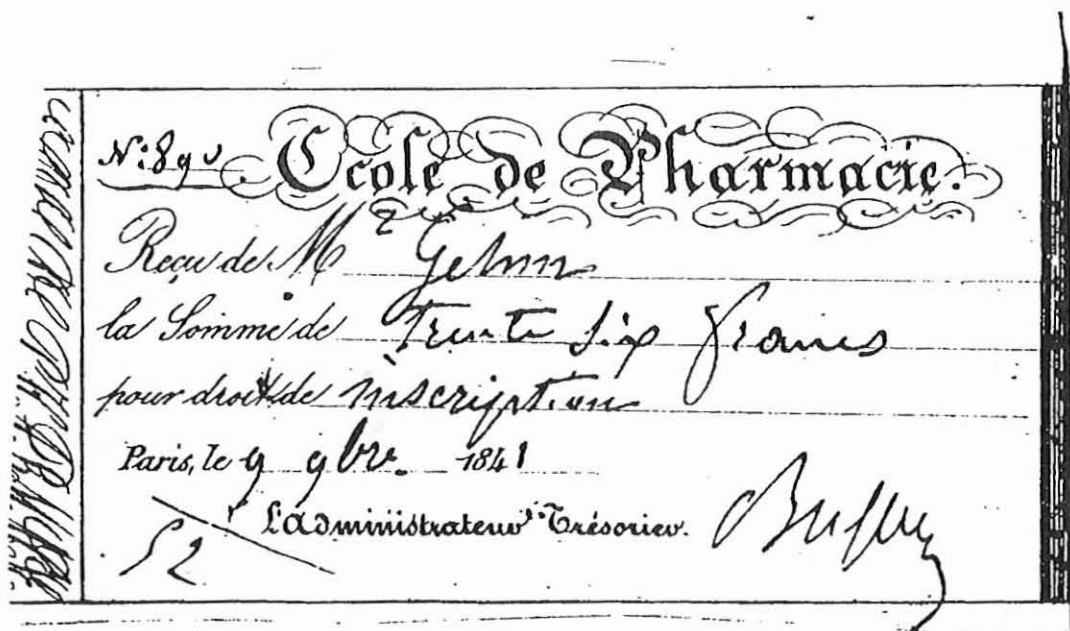 N° 890. Ecole de Pharmacie.
Reçu de Mr Gélin
la Somme de trente six francs
pour droit de inscription
Paris, le 9 9bre. 1841
L'Administrateur Trésorier.
52